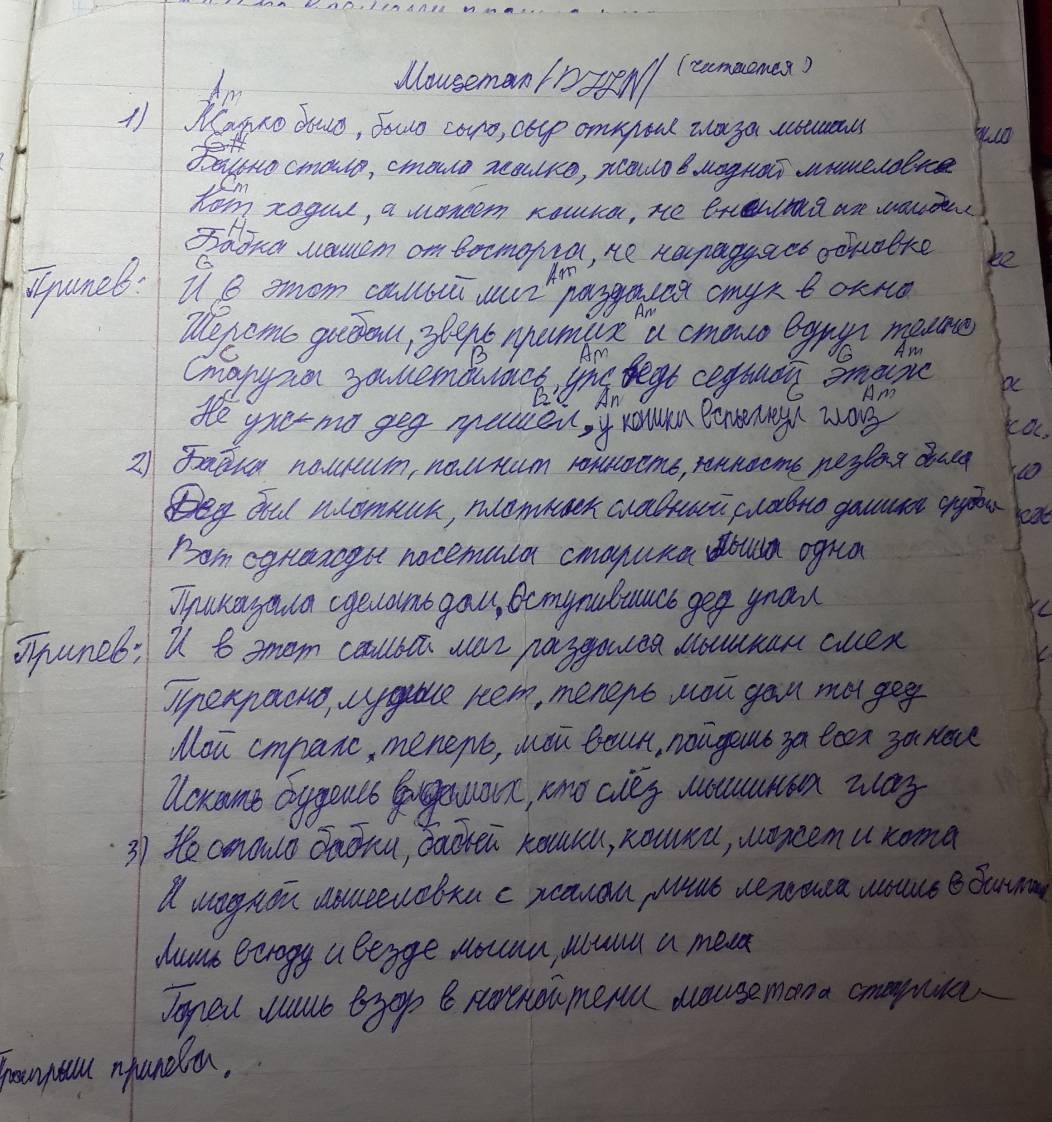 Моцетап /DJJN/ (читается)
Am
1) Жарко было, было сыро, сыр открыл глаза мышам
G#
Больно стало, стало жалко, жало в модной мышеловке
Cm
Кот ходил, а может кошка, не внимая их мольбам
H
Бабка машет от восторга, не нарадуясь обновке
G Am
Припев: И в этот самый миг раздался стук в окно
G Am
Шерсть дыбом, зверь притих и стало вдруг темно
C B Am G Am
Старуха заметалась, уж ведь седьмой этаж
C B Am G Am
Не уж-то дед пришёл, у кошки вспыхнул глаз
2) Бабка помнит, помнит юность, юность резвая была
Дед был плотник, плотник славный, славно домики срубал
Вот однажды посетила старика мышь одна
Приказала сделать дом, Оступившись дед упал
Припев: И в этот самый миг раздался мышкин смех
Прекрасно, лучше нет, теперь мой дом ты дед
Мой страж, теперь, мой воин, пойдешь за всех за нас
Искать будешь в домах, кто слёз мышиных глаз
3) Не стало бабки, бабьей кошки, кошки, может и кота
И модной мышеловки с жалом, лишь лежала мышь в бинтах
Лишь всюду и везде мыши, мыши и тела
Горел лишь взор в ночной тени моцетапа старика
Проигрыш припева.